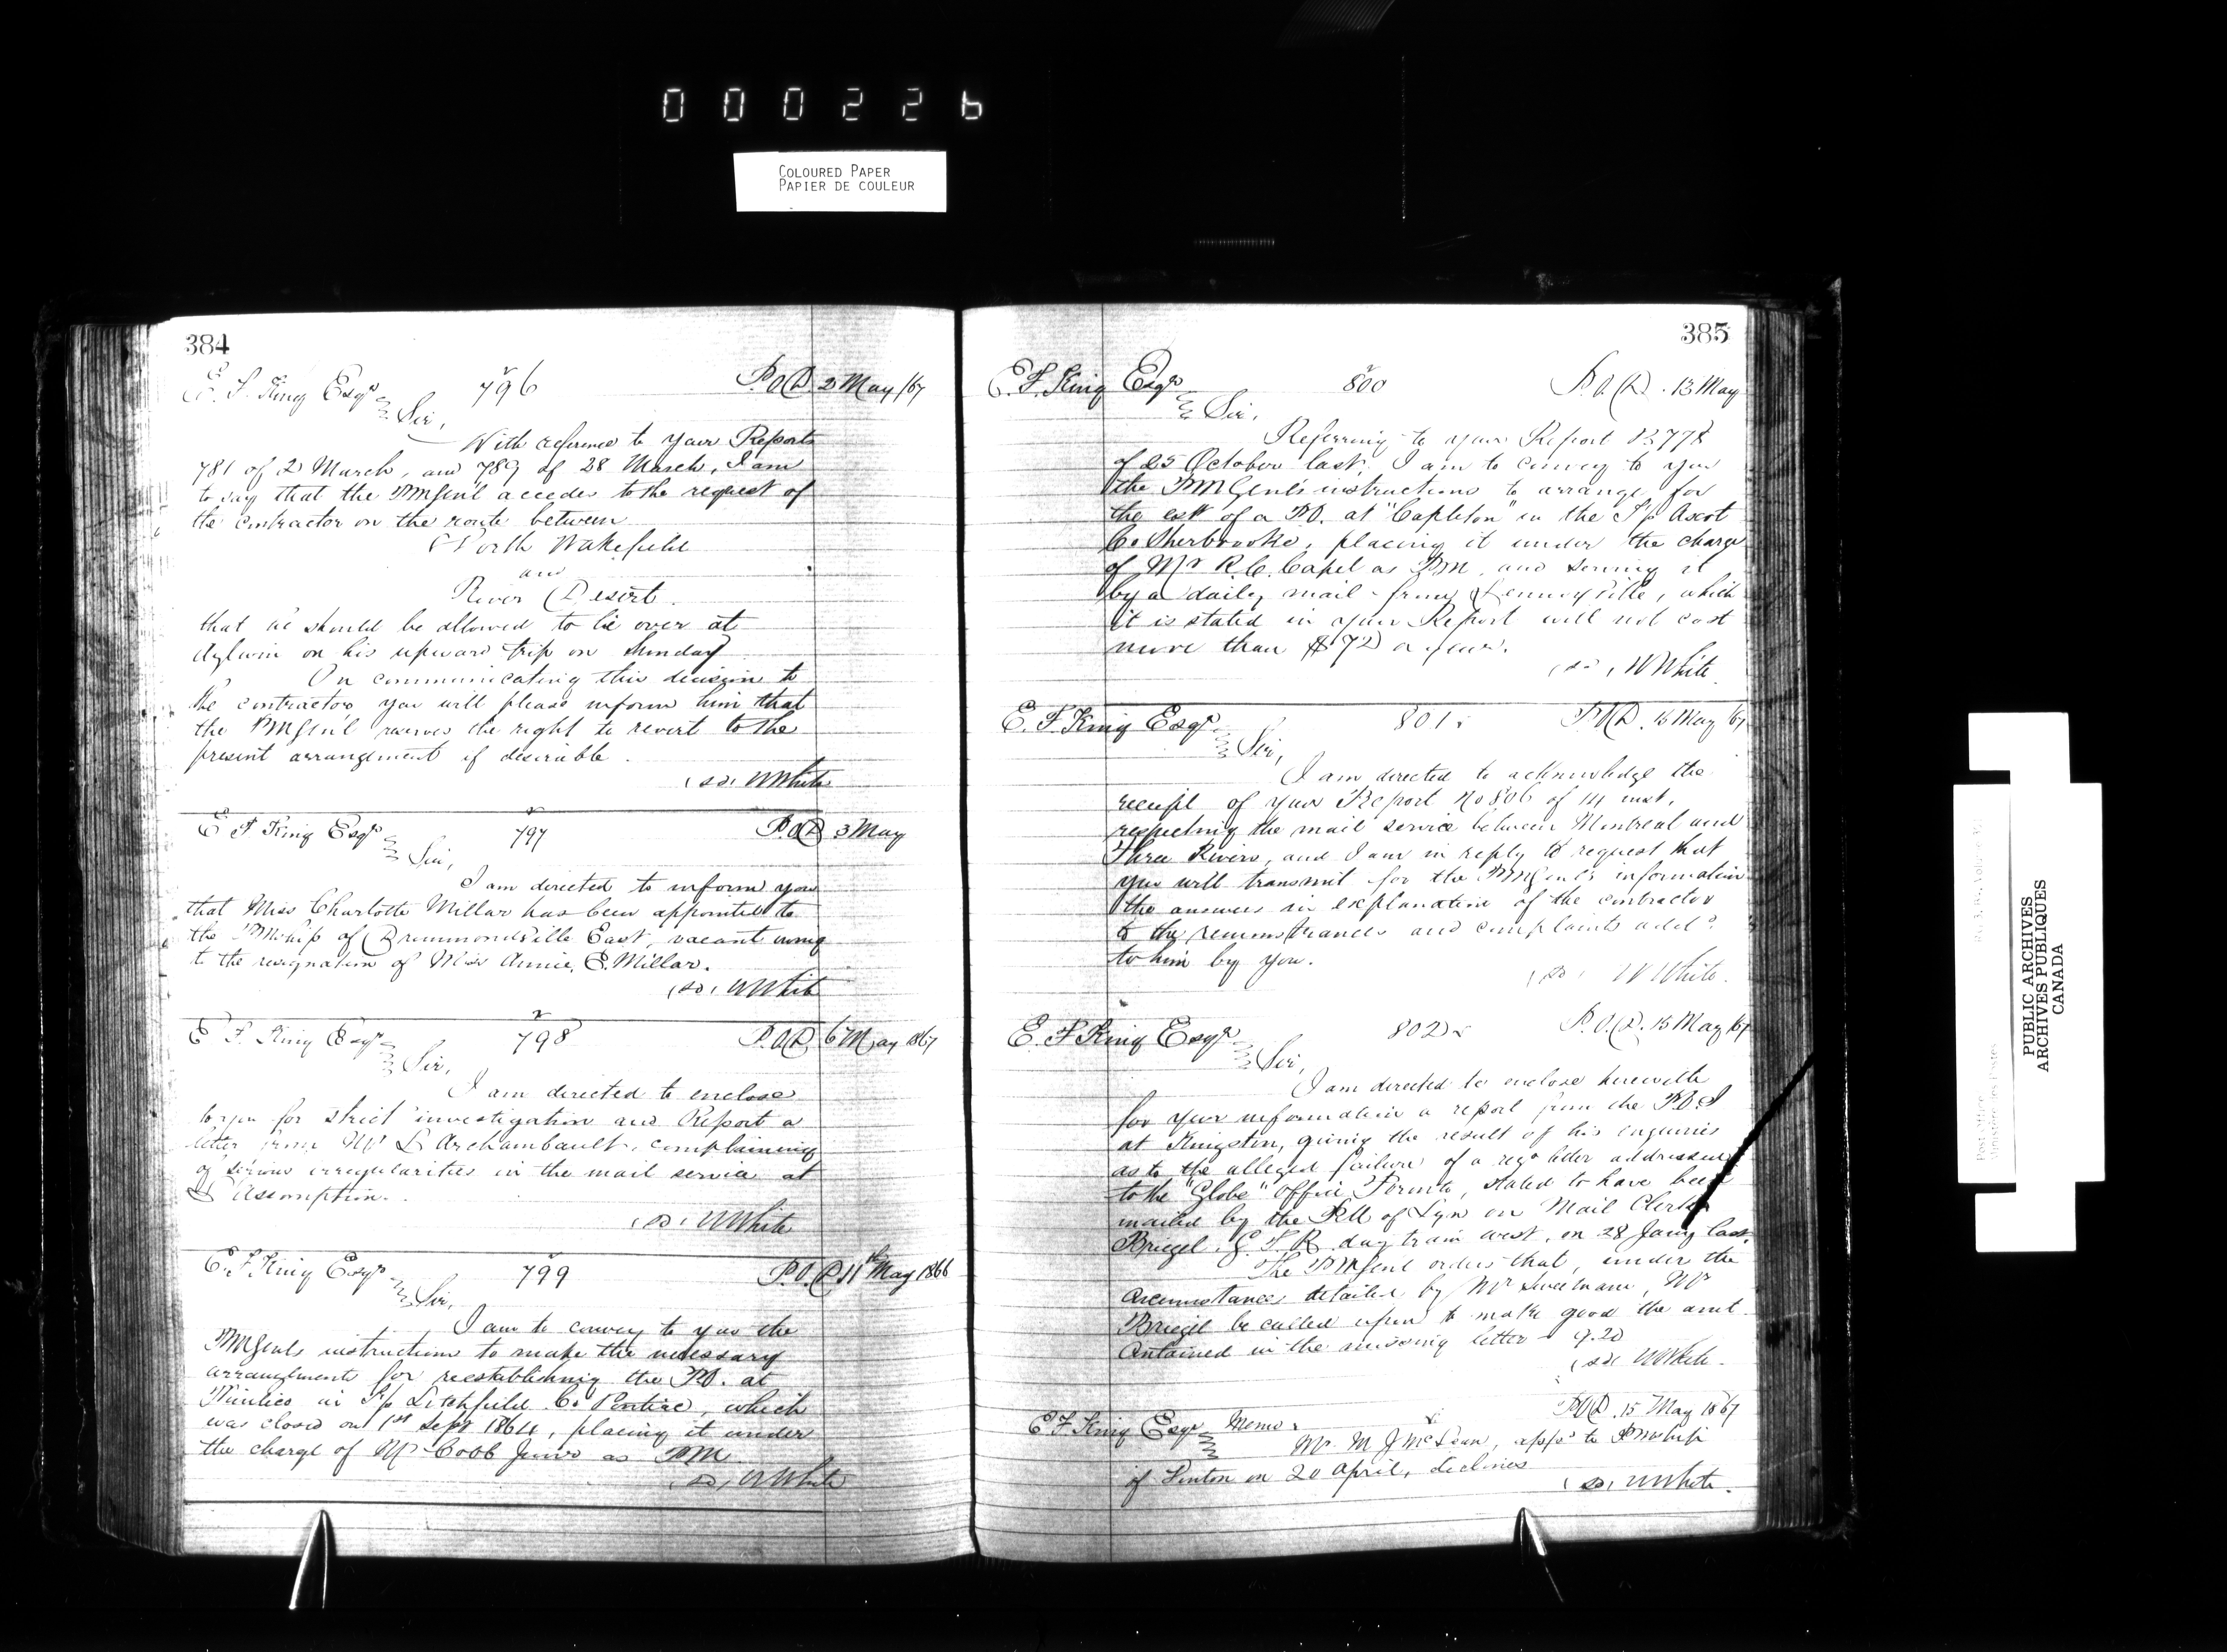 000226
COLOURED PAPER
PAPIER DE COULEUR
384
E. F. King Esqr 796 P.O.D 2 May /67
Sir,
With reference to your Reports
781 of 2 March, and 789 of 28 March, I am
to say that the PMGen'l accedes to the request of
the contractor on the route between
North Wakefield
and
River Desert.
that he should be allowed to lie over at
Aylwin on his upward trip on Sunday
On communicating this decision to
the contractor you will please inform him that
the PMGen'l reserves the right to revert to the
present arrangement if desirable.
(sd) W White
E F King Esqr 797 P.O.D 3 May
Sir,
I am directed to inform you
that Miss Charlotte Millar has been appointed to
the PMship of Drummondville East, vacant owing
to the resignation of Miss Annie E. Millar.
(sd) W White
E F. King Esqr 798 P.O.D. 6 May 1867
Sir,
I am directed to enclose
to you for strict investigation and Report a
letter from Mr L Archambault, complaining
of serious irregularities in the mail service at
L'Assomption.
(sd) W White
E. F. King Esqr 799 P.O.D 11th May 1866
Sir,
I am to convey to you the
PMGenl's instructions to make the necessary
arrangements for reestablishing the P.O. at
in T/p Litchfield Co Pontiac, which
was closed on 1st Sept 1864, placing it under
the charge of Mr Cobb Junr as PM
(sd) W White
385
E. F. King Esqr 800 P.O.D. 13 May
Sir,
Referring to your Report B 778
of 25 October last, I am to convey to you
the PMGenl's instructions to arrange for
the estt of a P.O. at "Capleton" in the T/p Ascot
Co Sherbrooke, placing it under the charge
of Mr R. C. Capel as PM, and serving it
by a daily mail from Lennoxville, which
it is stated in your Report will not cost
more than $72 a year.
(sd) W White
E. F. King Esqr 801 P.O.D. 15 May /67
Sir,
I am directed to acknowledge the
receipt of your Report No 806 of 14 inst,
respecting the mail service between Montreal and
Three Rivers, and I am in reply to request that
you will transmit for the PMGenl's information
the answers in explanation of the contractor
to the remonstrances and complaints addd
to him by you.
(sd) W White.
E. F. King Esqr 802 P.O.D. 15 May /67
Sir,
I am directed to enclose herewith
for your information a report from the P.O.I
at Kingston, giving the result of his enquiries
as to the alleged failure of a regd letter addressed
to the "Globe" Office Toronto, stated to have been
mailed by the PM of Lyn on Mail Clerk
Briegel, G. T. R. day train west, on 28 Jany last.
The PMGenl orders that, under the
circumstances detailed by Mr Sweetnam, Mr
Briegel be called upon to make good the amt
contained in the missing letter
(sd) W White.
P.O.D. 15 May 1867
E F. King Esqr Memo
Mr. M J McLean, appd to PMship
of Linton on 20 April, declines
(sd) W White.
PUBLIC ARCHIVES
ARCHIVES PUBLIQUES
CANADA